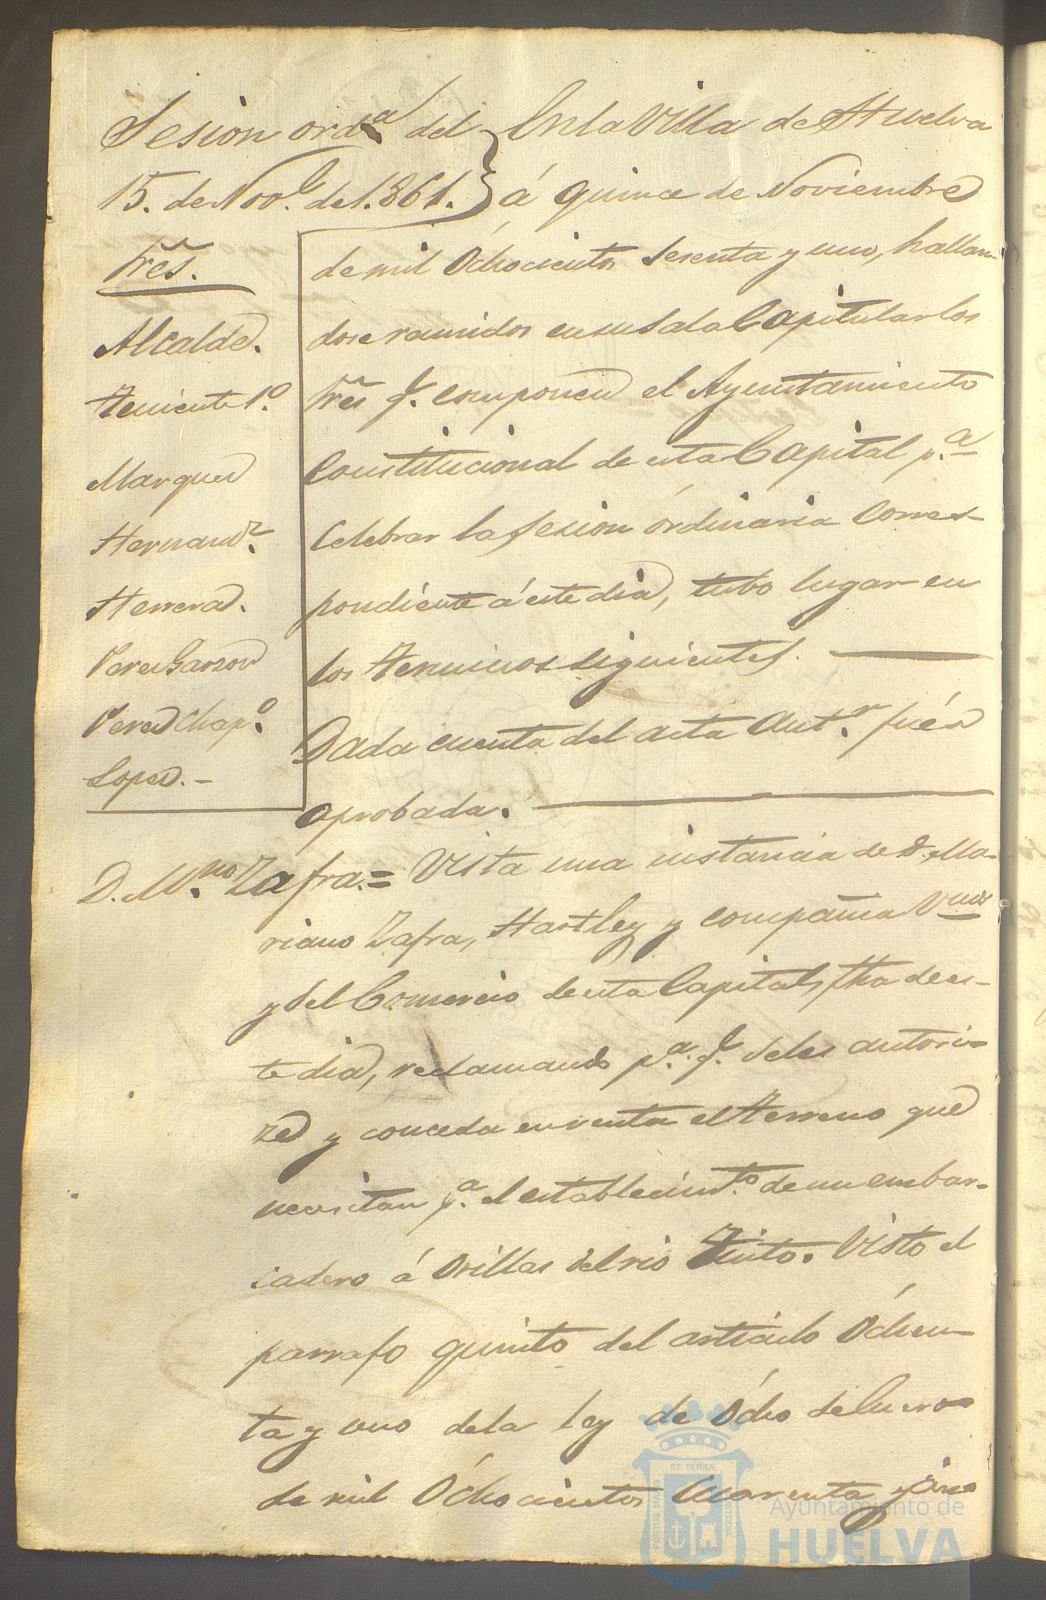 Sesion ord.ª del
15. de Nov.e de 1.861.
Sres.
Alcalde.
Teniente 1º.
Marquez
Hernand.z
Herrera.
Perez Garzon
Perez Chap.º
Lopez. –
En la Villa de Huelva
á quince de Noviembre
de mil Ochocientos sesenta y uno, hallan-
dose reunidos en su Sala Capitular los
Sres q.e componen el Ayuntamiento
Constitucional de esta Capital p.ª
celebrar la sesion órdinaria corres-
pondiente á este dia, tubo lugar en
los terminos siguientes. —
Dada cuenta del acta ant.r fué
aprobada. —
D. M.no Zafra.= Vista una instancia de D. Ma-
riano Zafra, Hartley y compañia V.nos
y del Comercio de esta Capital, fha de es-
te dia, reclamando p.ª q.e se les autori-
ze y conceda en venta el terreno que
necesitan p.ª el establecimt.to de un embar-
cadero á orillas del rio Tinto. Visto el
parrafo quinto del articulo Óchen-
ta y uno de la ley de Ócho de Enero
de mil Óchocientos cuarenta y cinco
Ayuntamiento de
HUELVA